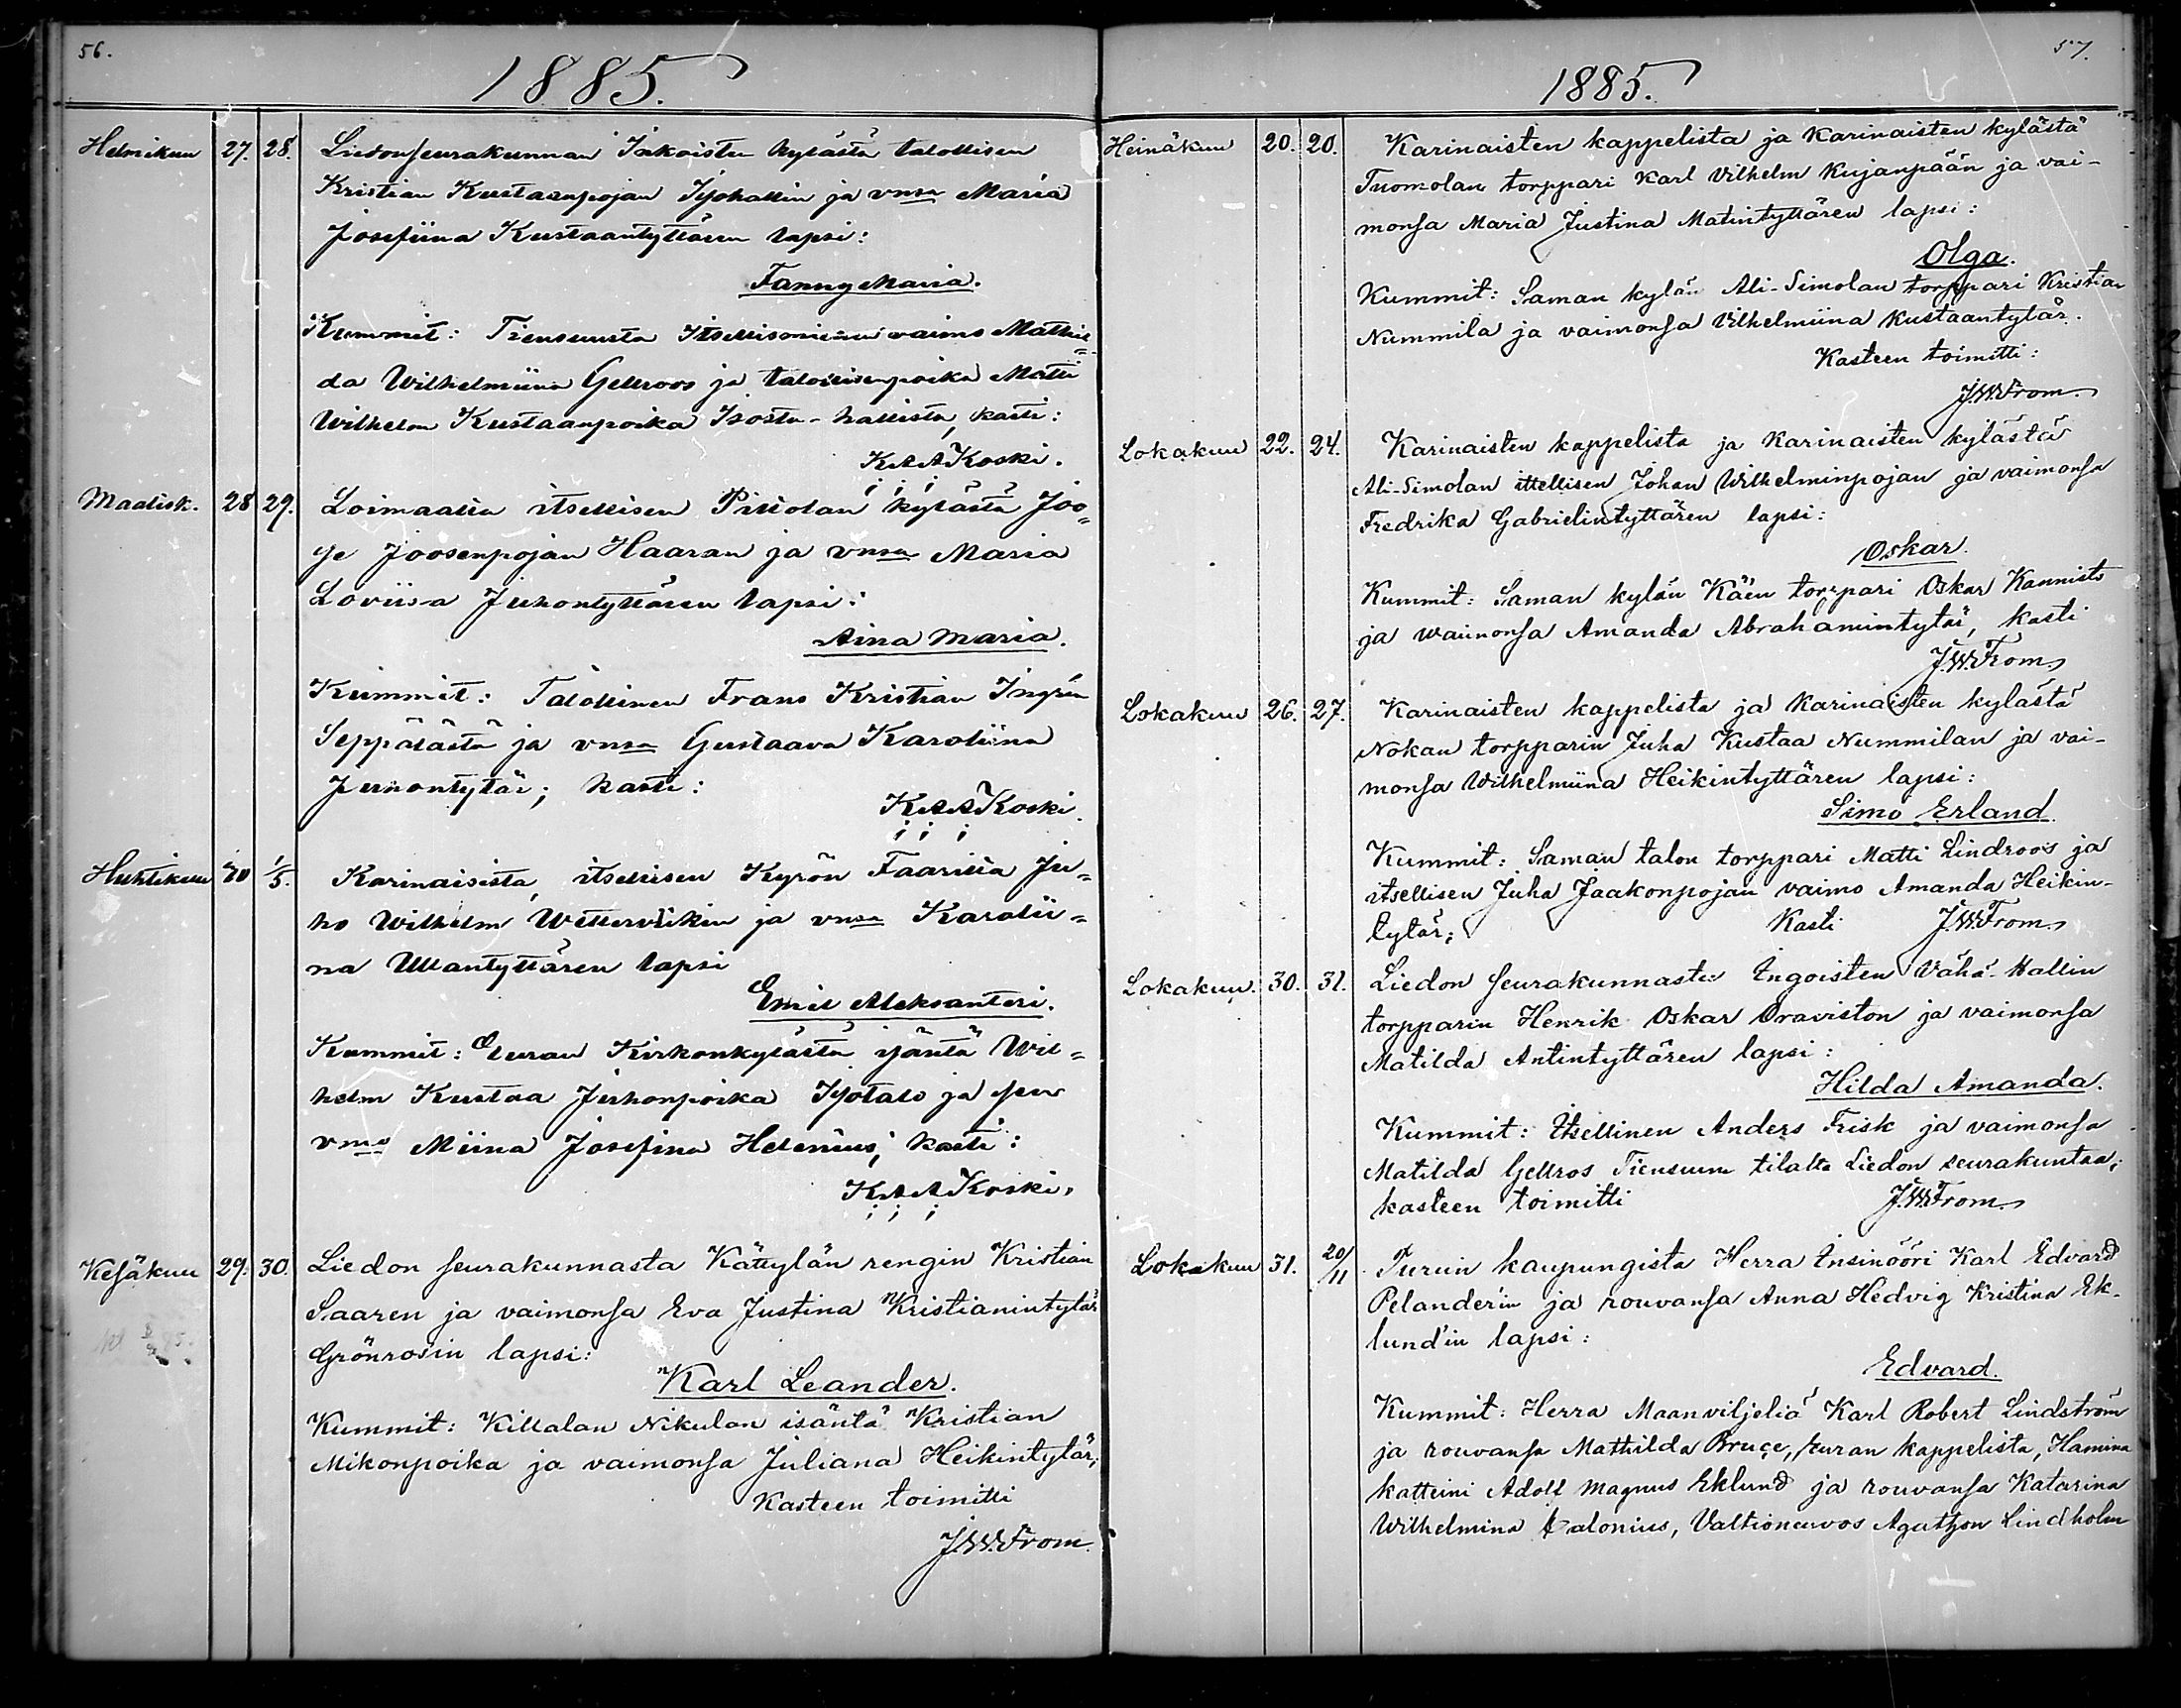 56.
1885.
Helmikuu 27. 28. Liedon seurakunnan Inkoisten kylästä talollisen
Kristian Kustaanpojan Isohallin ja vmsa Maria
Josefiina Kustaantyttären lapsi:
Fanny Maria.
Kummit: Tiensuusta Itsellisen vaimo Mathil=
da Wilhelmiina Gellroos ja talollisenpoika Matti
Wilhelm Kustaanpoika Isosta-hallista, kasti:
K.A.A. Koski.
Maalisk. 28 29. Loimaalta itsellisen Pillolan kylästä Joo=
se Joosenpojan Haaran ja vmsa Maria
Loviisa Juhontyttären lapsi:
Aina Maria.
Kummit: Talollinen Frans Kristian Ingrén
Seppälästä ja vmsa Gustaava Karoliina
Juhontytär; kasti:
K.A.A. Koski.
Huhtikuu 30 1/5. Karinaisista, itsellisen Kyrön Faarilla Ju=
ho Wilhelm Wettervikin ja vmsa Karolii=
na Ullantyttären lapsi
Emil Aleksanteri.
Kummit: Auran Kirkonkylästä isäntä Wil=
helm Kustaa Juhonpoika Isotalo ja sen
vmo Miina Josefina Helenius; kasti:
K.A.A. Koski.
Kesäkuu 29. 30. Liedon seurakunnasta Kättylän rengin Kristian
Saaren ja vaimonsa Eva Justina Kristianintytär
Grönrosin lapsi:
Karl Leander.
Kummit: Killalan Nikulan isäntä Kristian
Mikonpoika ja vaimonsa Juliana Heikintytär;
Kasteen toimitti
J.W. From.
57.
1885.
Heinäkuu 20. 20. Karinaisten kappelista ja Karinaisten kylästä
Tuomolan torppari Karl Vilhelm Kujanpään ja vai-
monsa Maria Justina Matintyttären lapsi:
Olga.
Kummit: Saman kylän Ali-Simolan torppari Kristian
Nummila ja vaimonsa Vilhelmiina Kustaantytär.
Kasteen toimitti:
J.W. From.
Lokakuu 22. 24. Karinaisten kappelista ja Karinaisten kylästä
Ali-Simolan ittellisen Johan Wilhelminpojan ja vaimonsa
Fredrika Gabrielintyttären lapsi:
Oskar.
Kummit: Saman kylän Käen torppari Oskar Kannisto
ja waimonsa Amanda Abrahamintytär, kasti
J.W. From.
Lokakuu 26. 27. Karinaisten kappelista ja Karinaisten kylästä
Nokan torpparin Juha Kustaa Nummilan ja vai-
monsa Wilhelmiina Heikintyttären lapsi:
Simo Erland.
Kummit: Saman talon torppari Matti Lindroos ja
itsellisen Juha Jaakonpojan vaimo Amanda Heikin-
tytär; Kasti J.W. From.
Lokakuu. 30. 31. Liedon seurakunnasta Ingoisten Vähä-Hallin
torpparin Henrik Oskar Oraviston ja vaimonsa
Matilda Antintyttären lapsi:
Hilda Amanda.
Kummit: Itsellinen Anders Frisk ja vaimonsa
Matilda Gellros Tiensuun tilalta Liedon seurakuntaa,
kasteen toimitti J.W. From.
Lokakuu 31. 20/11 Turun kaupungista Herra Insinööri Karl Edvard
Pelander'in ja rouvansa Anna Hedvig Kristina Ek-
lund'in lapsi:
Edvard.
Kummit: Herra Maanviljeliä Karl Robert Lindström
ja rouvansa Mathilda Bruce, Auran kappelista, Kamina
katteini Adolf Magnus Eklund ja rouvansa Katarina
Wilhelmina Calonius, Valtioneuvos Agathon Lindholm